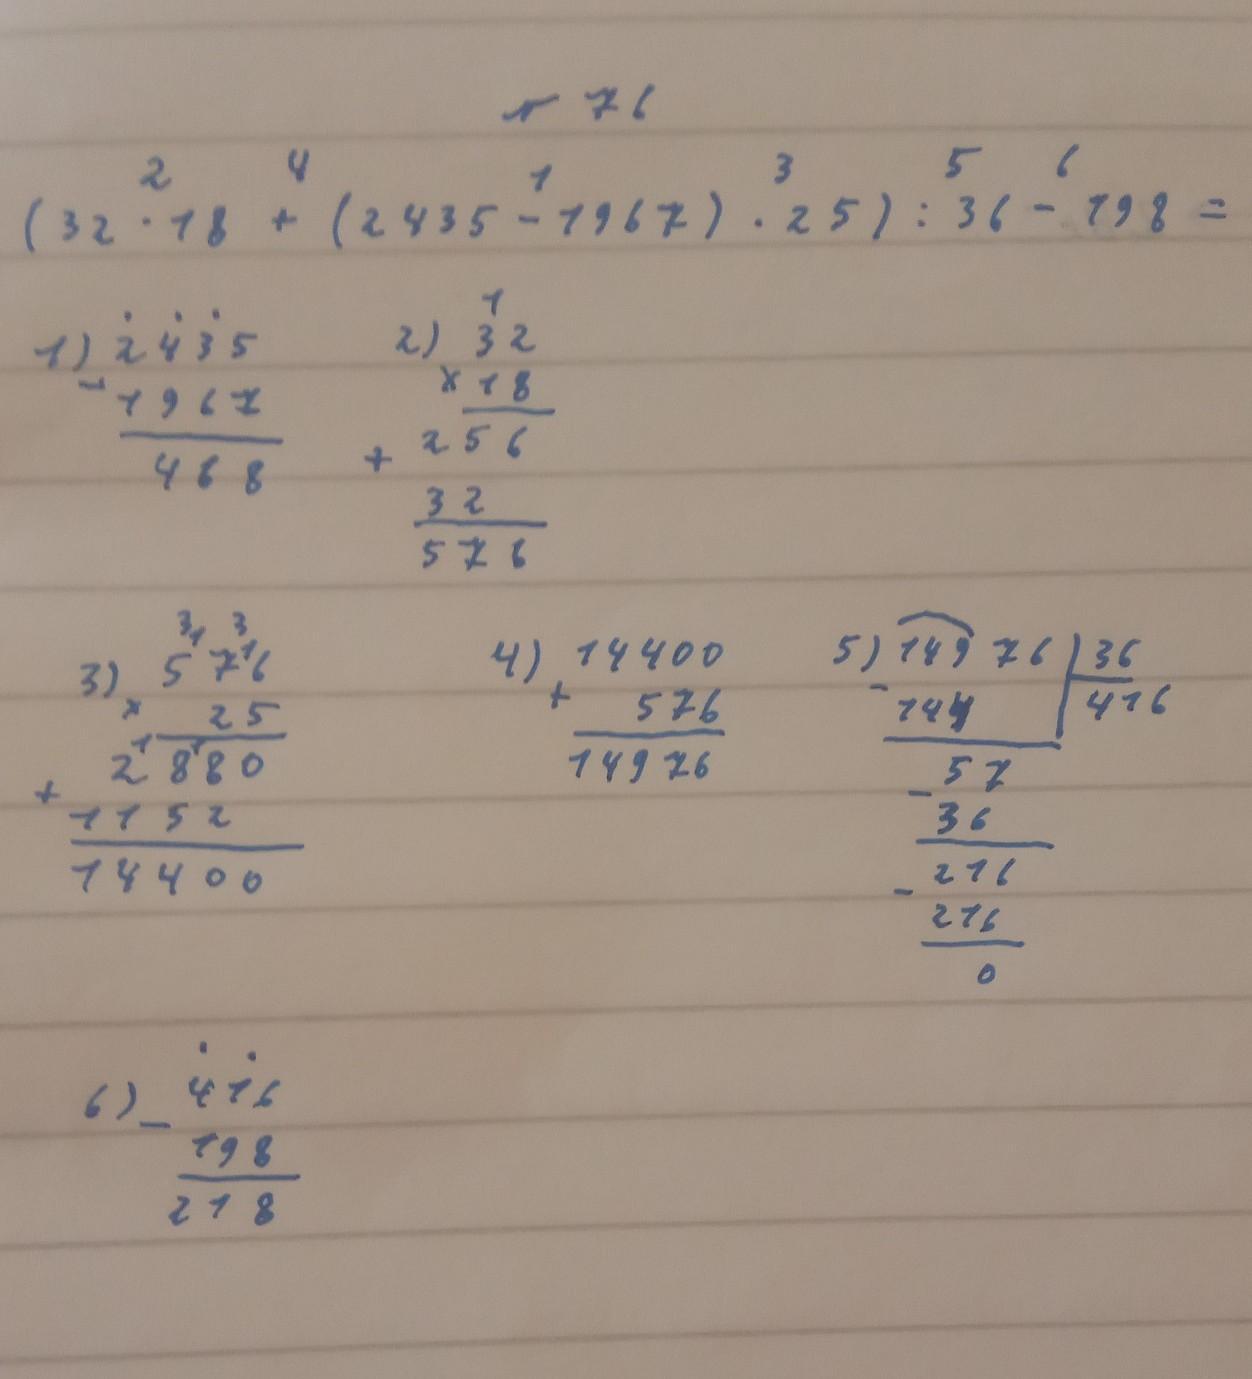 № 76
2 4 1 3 5 6
(32 · 18 + (2435 - 1967) · 25) : 36 - 198 =
1) 2435
- 1967
468
2) 1
32
× 18
256
+ 32
576
3) 3 1 3 1
576
× 25
1 1
2880
+ 1152
14400
4) 14400
+ 576
14976
5) 14976 | 36
- 144 | 416
- 57
36
- 216
216
0
6) - 416
198
218